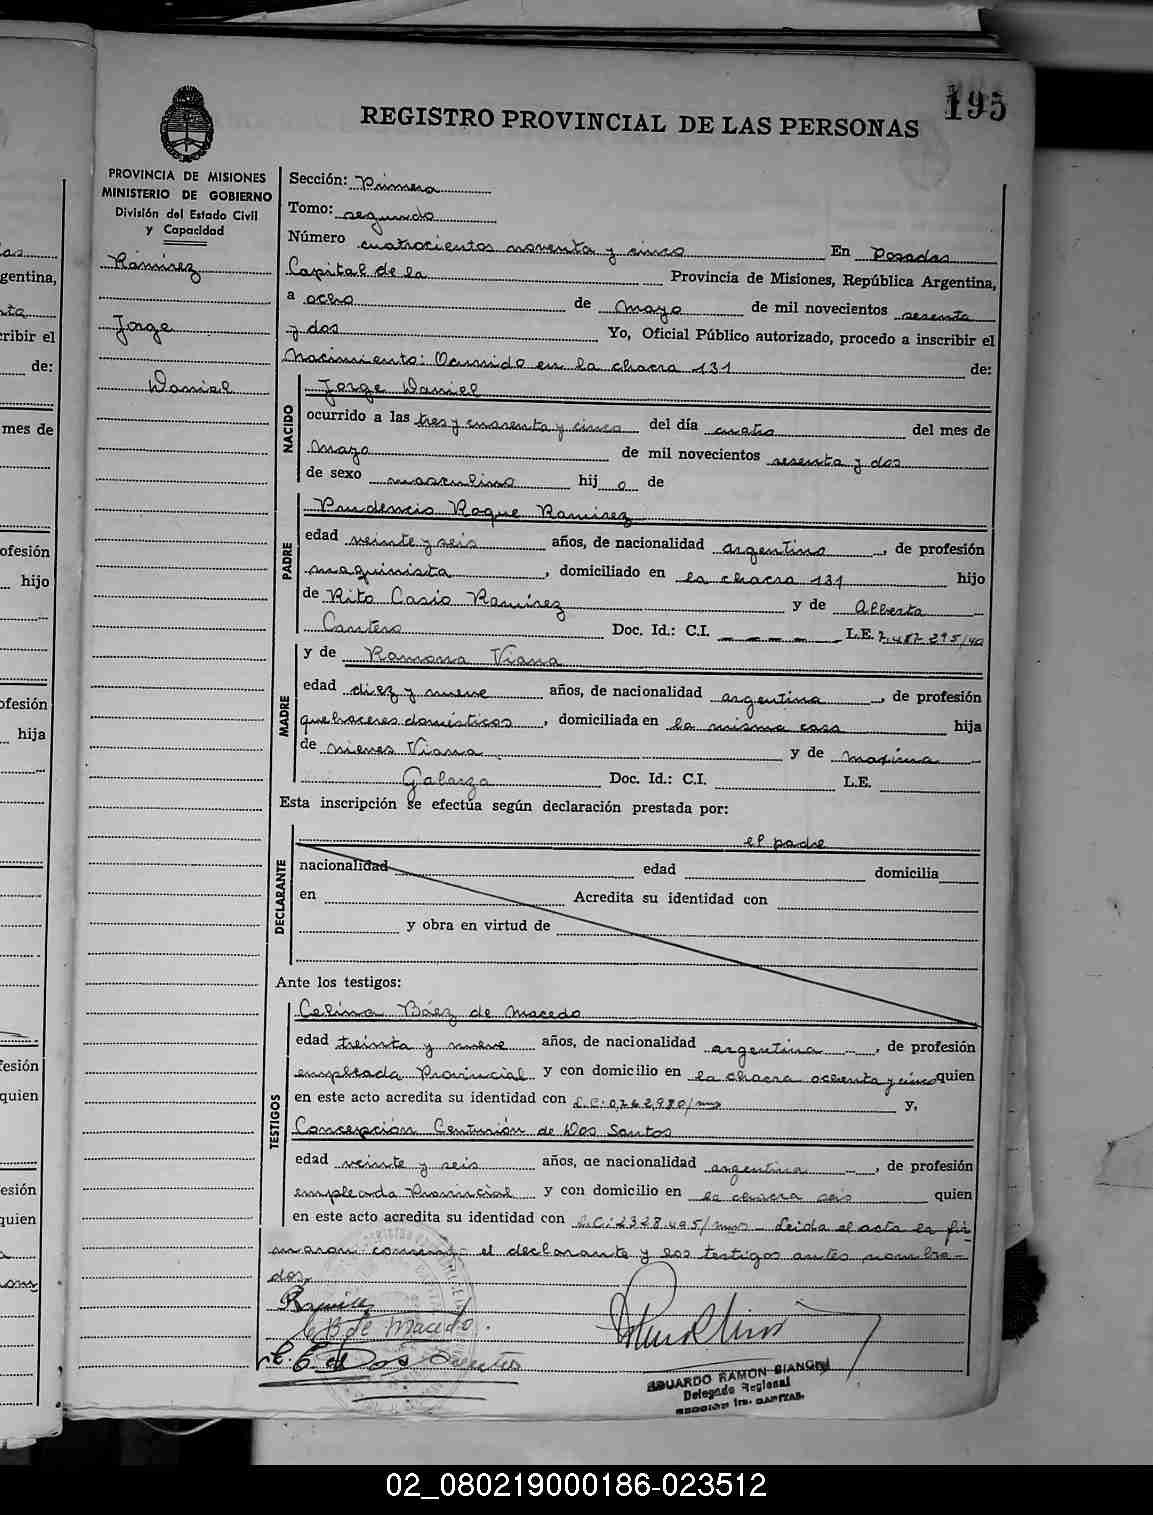 195
REGISTRO PROVINCIAL DE LAS PERSONAS
PROVINCIA DE MISIONES
MINISTERIO DE GOBIERNO
División del Estado Civil
y Capacidad
Ramírez
Jorge
Daniel
Sección: Primera
Tomo: segundo
Número cuatrocientos noventa y cinco En Posadas
Capital de la Provincia de Misiones, República Argentina,
a ocho de Mayo de mil novecientos sesenta
y dos Yo, Oficial Público autorizado, procedo a inscribir el
Nacimiento: Ocurrido en la chacra 131 de:
NACIDO
Jorge Daniel
ocurrido a las tres y cuarenta y cinco del día cuatro del mes de
Mayo de mil novecientos sesenta y dos
de sexo masculino hij o de
PADRE
Prudencio Roque Ramirez
edad veinte y seis años, de nacionalidad argentino, de profesión
maquinista, domiciliado en la chacra 131 hijo
de Rito Casio Ramírez y de Alberta
Cantero Doc. Id.: C.I. _ _ _ _ L.E. 7.487.295/40
MADRE
y de Ramona Viana
edad diez y nueve años, de nacionalidad argentina, de profesión
quehaceres domésticos, domiciliada en la misma casa hija
de nieves Viana y de maxima
Galarza Doc. Id.: C.I. L.E.
Esta inscripción se efectúa según declaración prestada por:
el padre
DECLARANTE
nacionalidad edad domicilia
en Acredita su identidad con
y obra en virtud de
Ante los testigos:
TESTIGOS
Celina Báez de Macedo
edad treinta y nueve años, de nacionalidad argentina, de profesión
empleada Provincial y con domicilio en la chacra ochenta y cinco quien
en este acto acredita su identidad con L.C: 0.262,980/ y,
Concepción Centurión de Dos Santos
edad veinte y seis años, de nacionalidad argentina, de profesión
empleada Provincial y con domicilio en la chacra seis quien
en este acto acredita su identidad con L.C: 2328.495/ Leida el acta la fir
maron conmigo el declarante y los testigos antes nombra-
dos,
Ramirez
C B de Macedo.
C. C de Dos Santos
EDUARDO RAMON BIANCHI
Delegado Regional
SECCION 1ra. CAPITAL
02_080219000186-023512